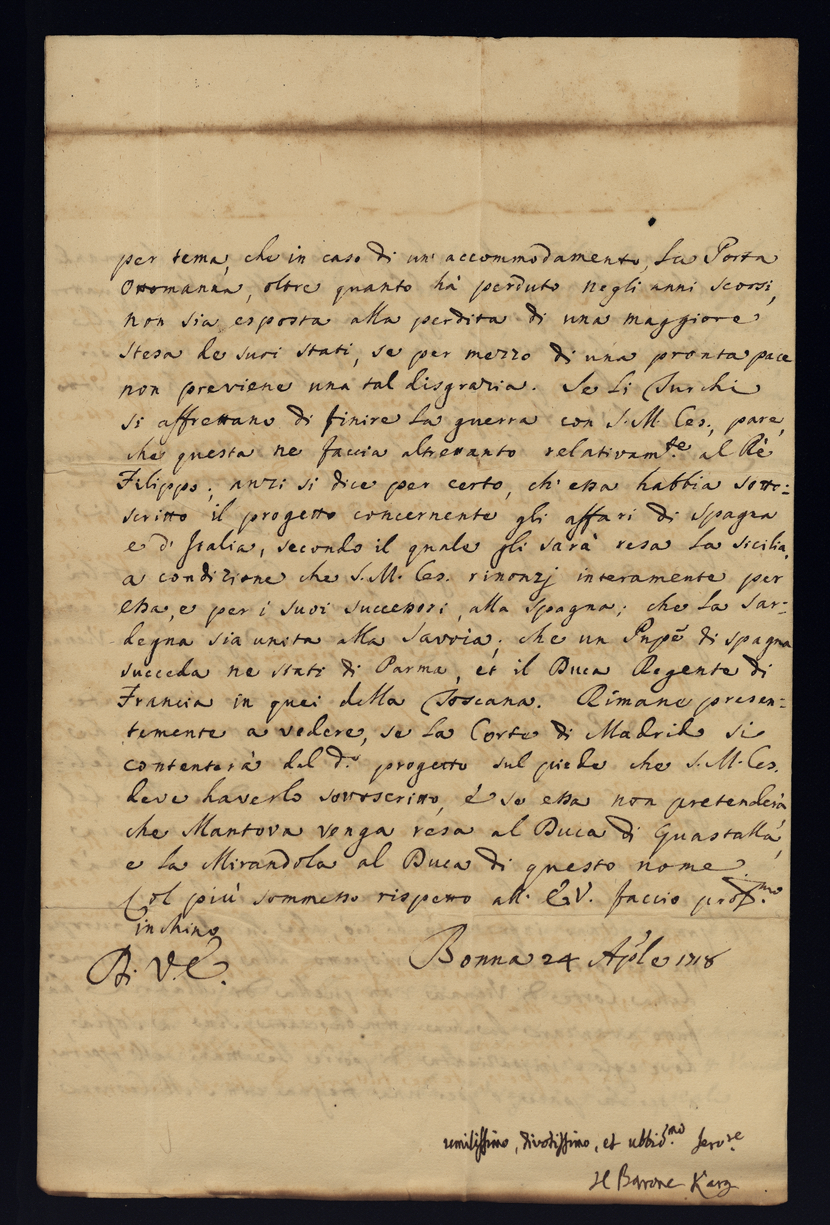 per tema, che in caso di un' accommodamento, La Porta
Ottomanna, oltre quanto hà perduto negli anni scorsi,
non sia esposta alla perdita di una maggiore
stesa de suoi stati, se per mezzo di una pronta pace
non previene una tal disgrazia. Se Li Turchi
si affrettano di finire La guerra con S. M. Ces., pare,
che questa ne faccia altrettanto relativam.te al Rè
Filippo; anzi si dice per certo, ch' essa habbia sotto=
scritto il progetto concernente gli affari di Spagna
e d' Italia, secondo il quale gli sarà resa La Sicilia,
a condizione che S. M. Ces. rinonzj interamente per
essa, e per i suoi successori, alla Spagna; che La Sar=
degna sia unita alla Savoia; che un Pnpẽ di Spagna
succeda ne stati di Parma, et il Duca Regente di
Francia in quei della Toscana. Rimane presen=
temente a vedere, se La Corte di Madrid si
contenterà del d.o progetto sul piede che S. M. Ces.
deve haverlo sottoscritto, è se essa non pretenderà
che Mantova venga resa al Duca di Guastalla,
e La Mirandola al Duca di questo nome.
Col più sommesso rispetto all' E. V. faccio prof.mo
inchino
Di V. E. Bonna 24 Aple 1718
umilissimo, divotissimo, et ubbid.mo serv.re
Il Barone Karg